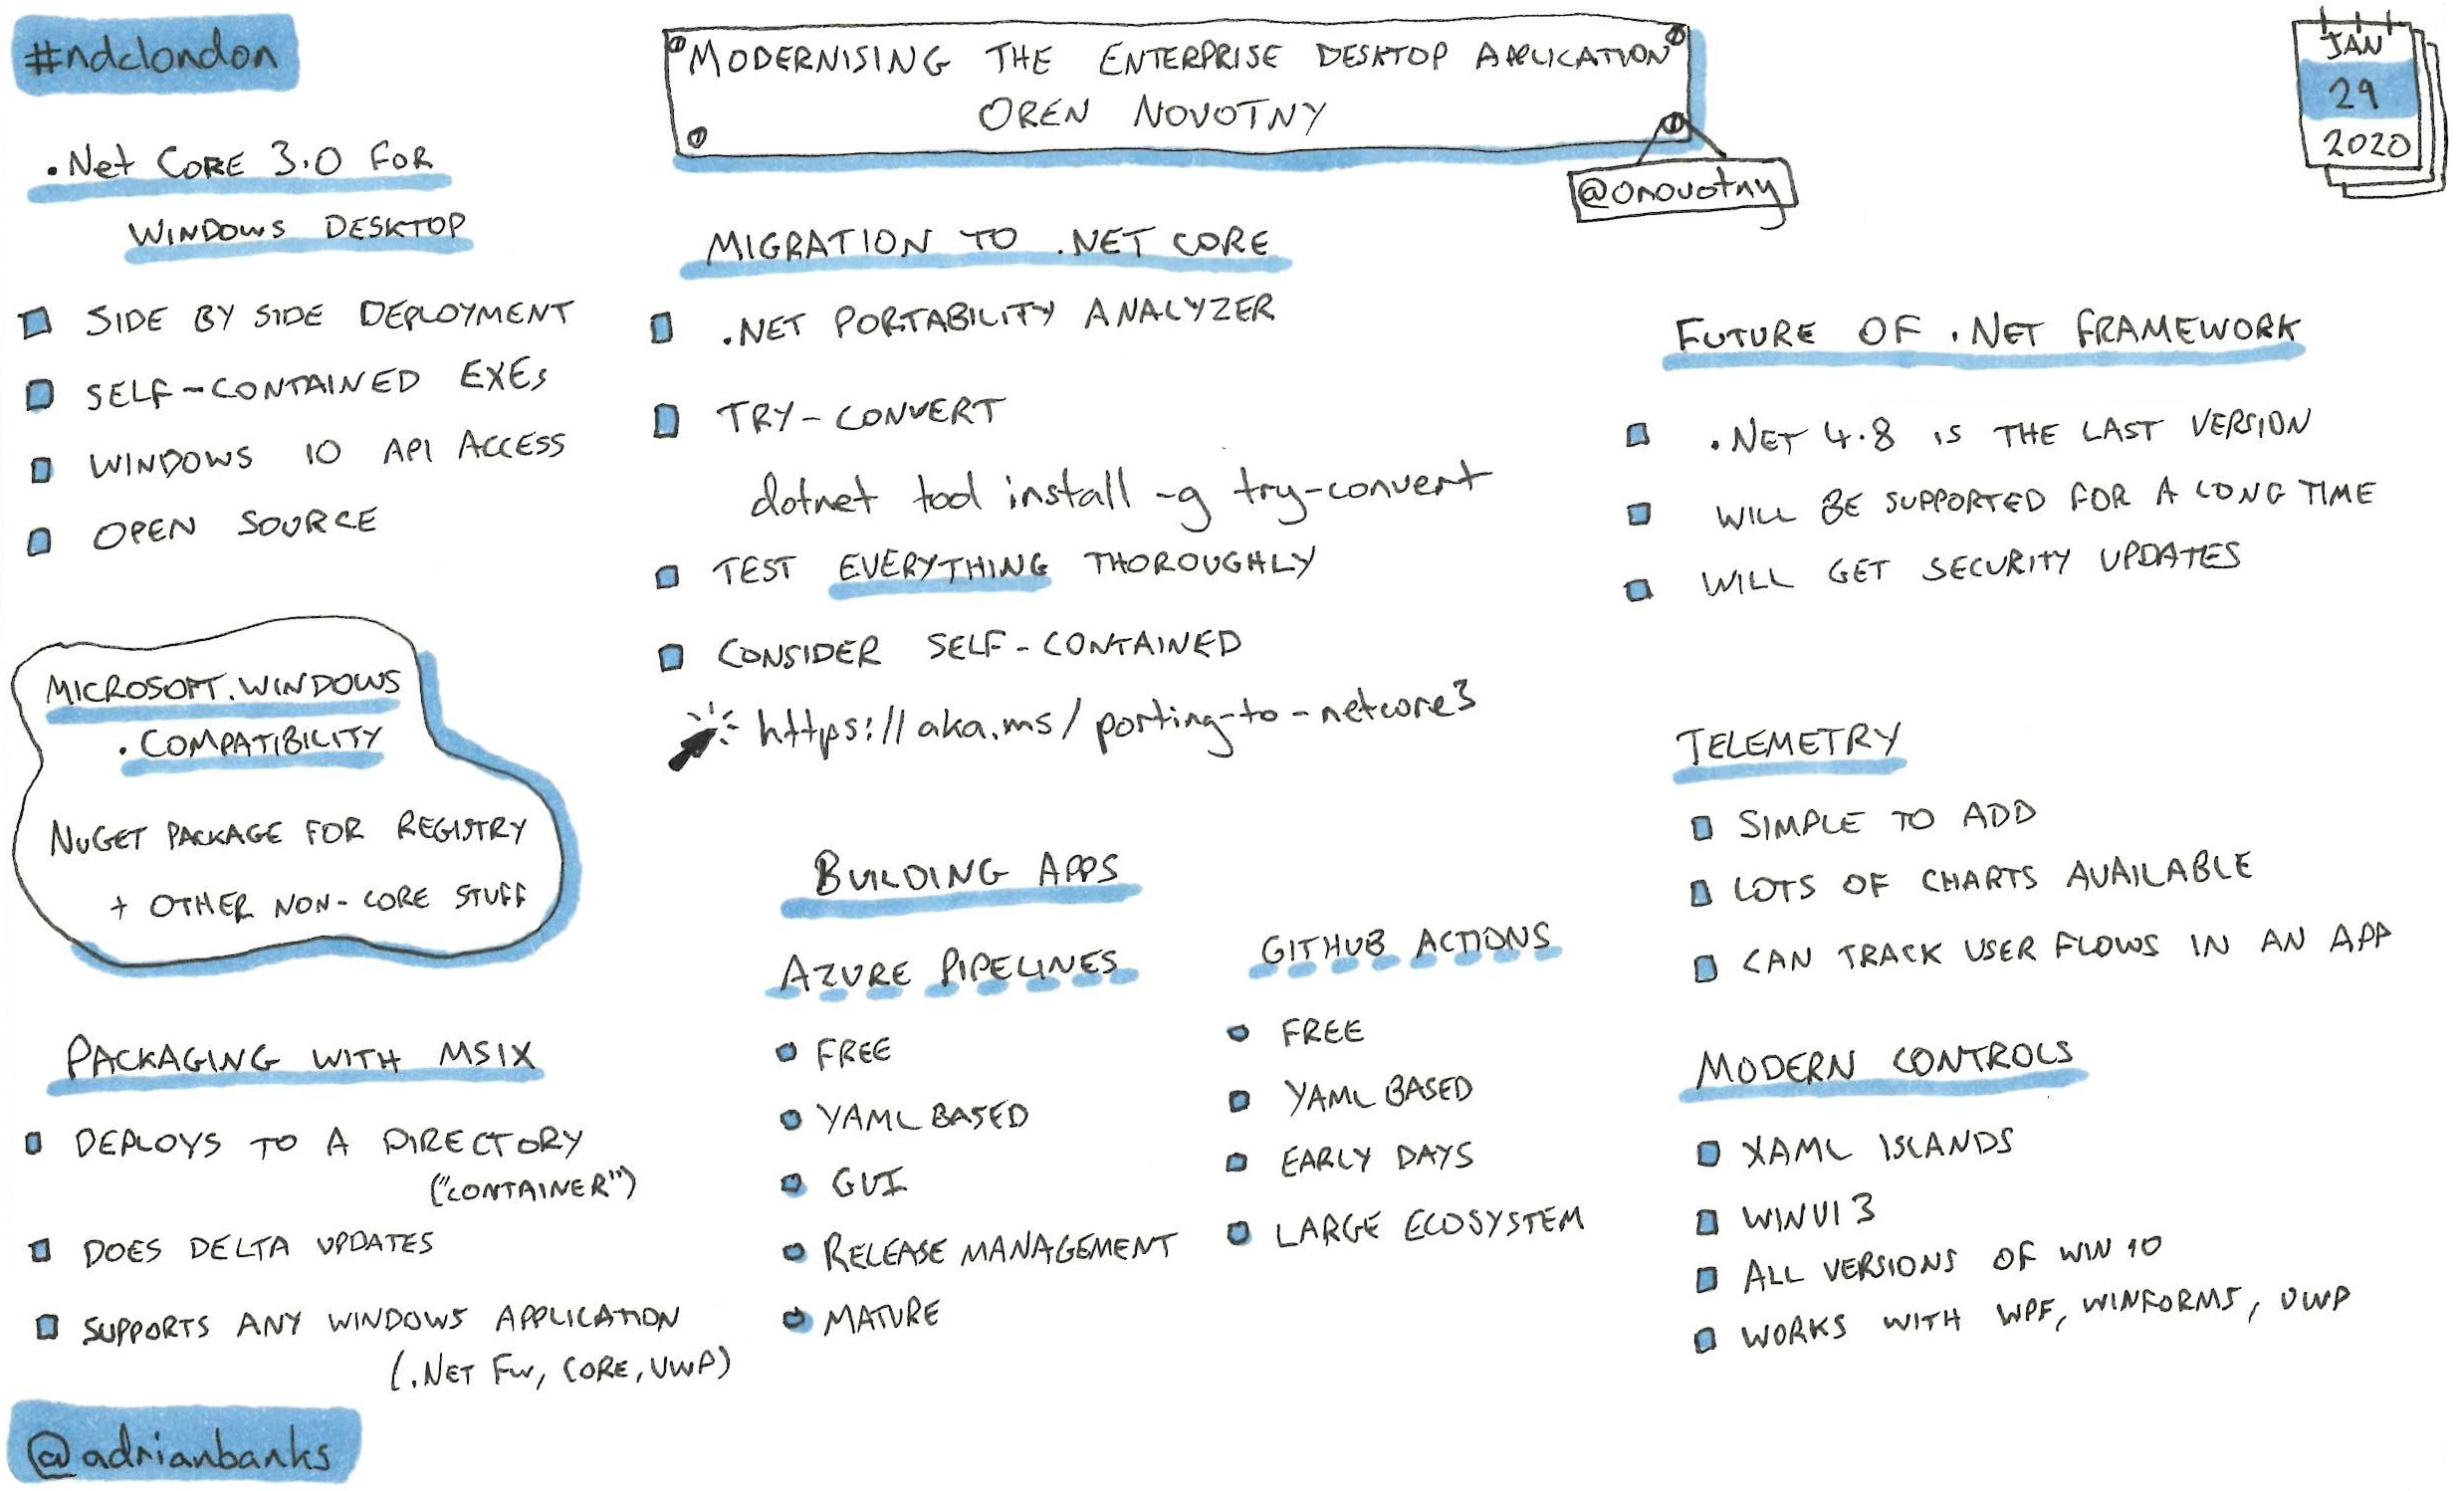 #ndclondon
MODERNISING THE ENTERPRISE DESKTOP APPLICATION
OREN NOVOTNY
@onovotny
JAN
29
2020
.NET CORE 3.0 FOR
WINDOWS DESKTOP
SIDE BY SIDE DEPLOYMENT
SELF-CONTAINED EXEs
WINDOWS 10 API ACCESS
OPEN SOURCE
MICROSOFT.WINDOWS
.COMPATIBILITY
NUGET PACKAGE FOR REGISTRY
+ OTHER NON-CORE STUFF
PACKAGING WITH MSIX
DEPLOYS TO A DIRECTORY
("CONTAINER")
DOES DELTA UPDATES
SUPPORTS ANY WINDOWS APPLICATION
(.NET FW, CORE, UWP)
@adrianbanks
MIGRATION TO .NET CORE
.NET PORTABILITY ANALYZER
TRY-CONVERT
dotnet tool install -g try-convert
TEST EVERYTHING THOROUGHLY
CONSIDER SELF-CONTAINED
https://aka.ms/porting-to-netcore3
BUILDING APPS
AZURE PIPELINES
FREE
YAML BASED
GUI
RELEASE MANAGEMENT
MATURE
GITHUB ACTIONS
FREE
YAML BASED
EARLY DAYS
LARGE ECOSYSTEM
FUTURE OF .NET FRAMEWORK
.NET 4.8 IS THE LAST VERSION
WILL BE SUPPORTED FOR A LONG TIME
WILL GET SECURITY UPDATES
TELEMETRY
SIMPLE TO ADD
LOTS OF CHARTS AVAILABLE
CAN TRACK USER FLOWS IN AN APP
MODERN CONTROLS
XAML ISLANDS
WINUI 3
ALL VERSIONS OF WIN 10
WORKS WITH WPF, WINFORMS, UWP